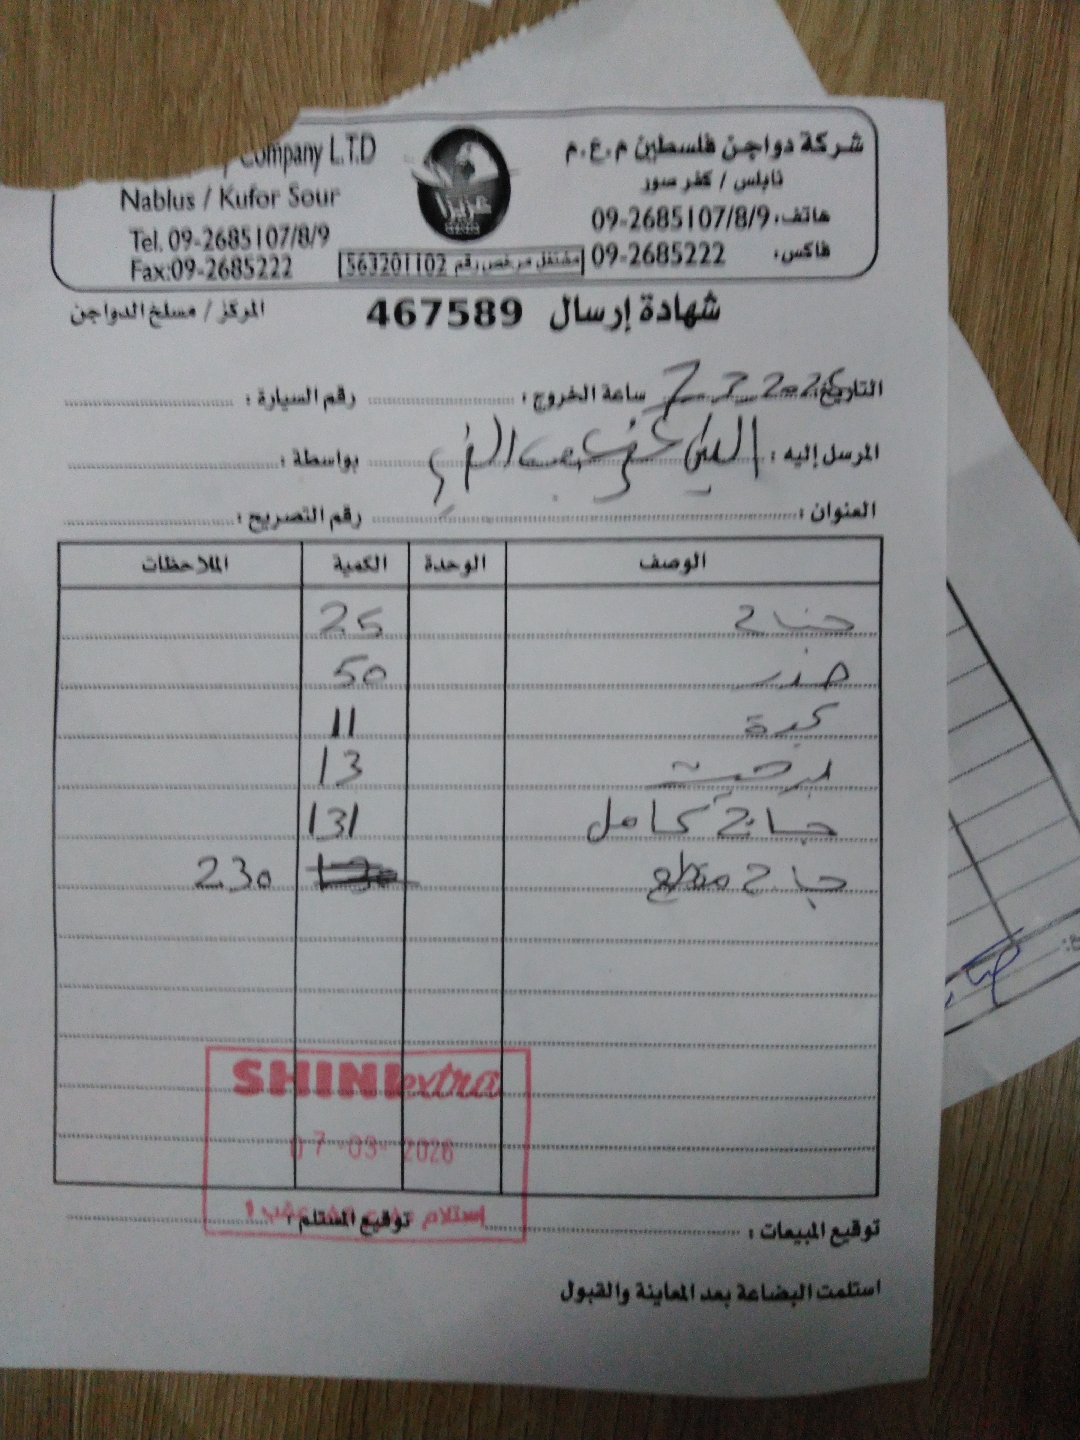 شركة دواجن فلسطين م.ع.م
Company L.T.D
نابلس / كفر سور
Nablus / Kufor Sour
هاتف: 09-2685107/8/9
Tel. 09-2685107/8/9
فاكس: 09-2685222
مشتغل مرخص رقم 563201102
Fax:09-2685222
عزيزا
شهادة إرسال 467589
المركز / مسلخ الدواجن
التاريخ: 7 3 2026 ساعة الخروج: رقم السيارة:
المرسل إليه: بواسطة:
العنوان: رقم التصريح:
الوصف الوحدة الكمية الملاحظات
جناح 25
صدر 50
كبدة 11
13
دجاج كامل 131
دجاج مقطع 230
SHINI extra
07-03-2026
إستلام
توقيع المبيعات: توقيع المستلم:
استلمت البضاعة بعد المعاينة والقبول